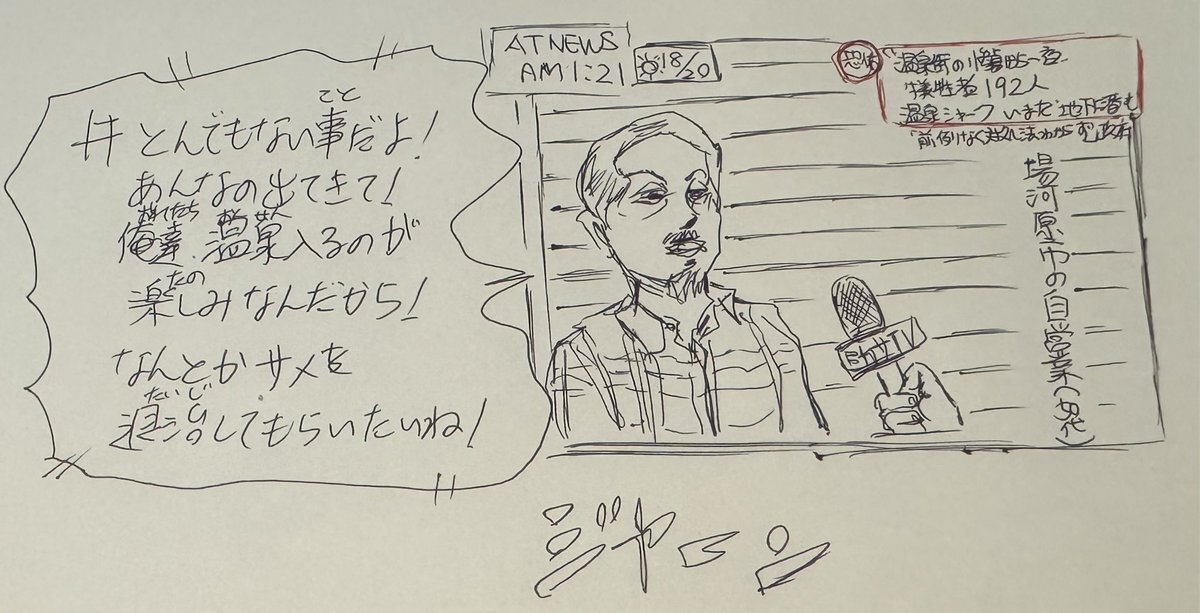 とんでもない事だよ!
こと
あんなの出てきて!
俺達、温泉入るのが
おれたち おんせん
楽しみなんだから!
たの
なんとかサメを
退治してもらいたいね!
たいじ
ATNEWS
AM1:21
18/20
恐怖
温泉街の惨劇から一夜
犠牲者192人
温泉シャークいまだ地下に潜む
「前例なく対処法わからず」政府
場河原市の自営業(50代)
TV
ジャーン